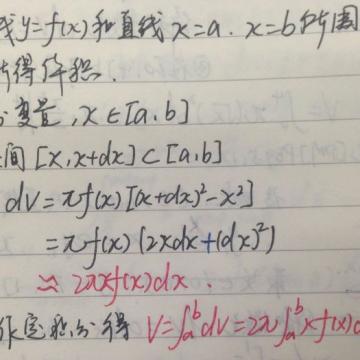 线y=f(x)和直线x=a.x=b所围
所得体积.
分变量,x∈[a,b]
间[x,x+dx]⊂[a,b]
dV=πf(x)[(x+dx)²-x²]
=πf(x)(2xdx+(dx)²)
≈2πxf(x)dx.
定积分得 V=∫ₐᵇdV=2π∫ₐᵇxf(x)d